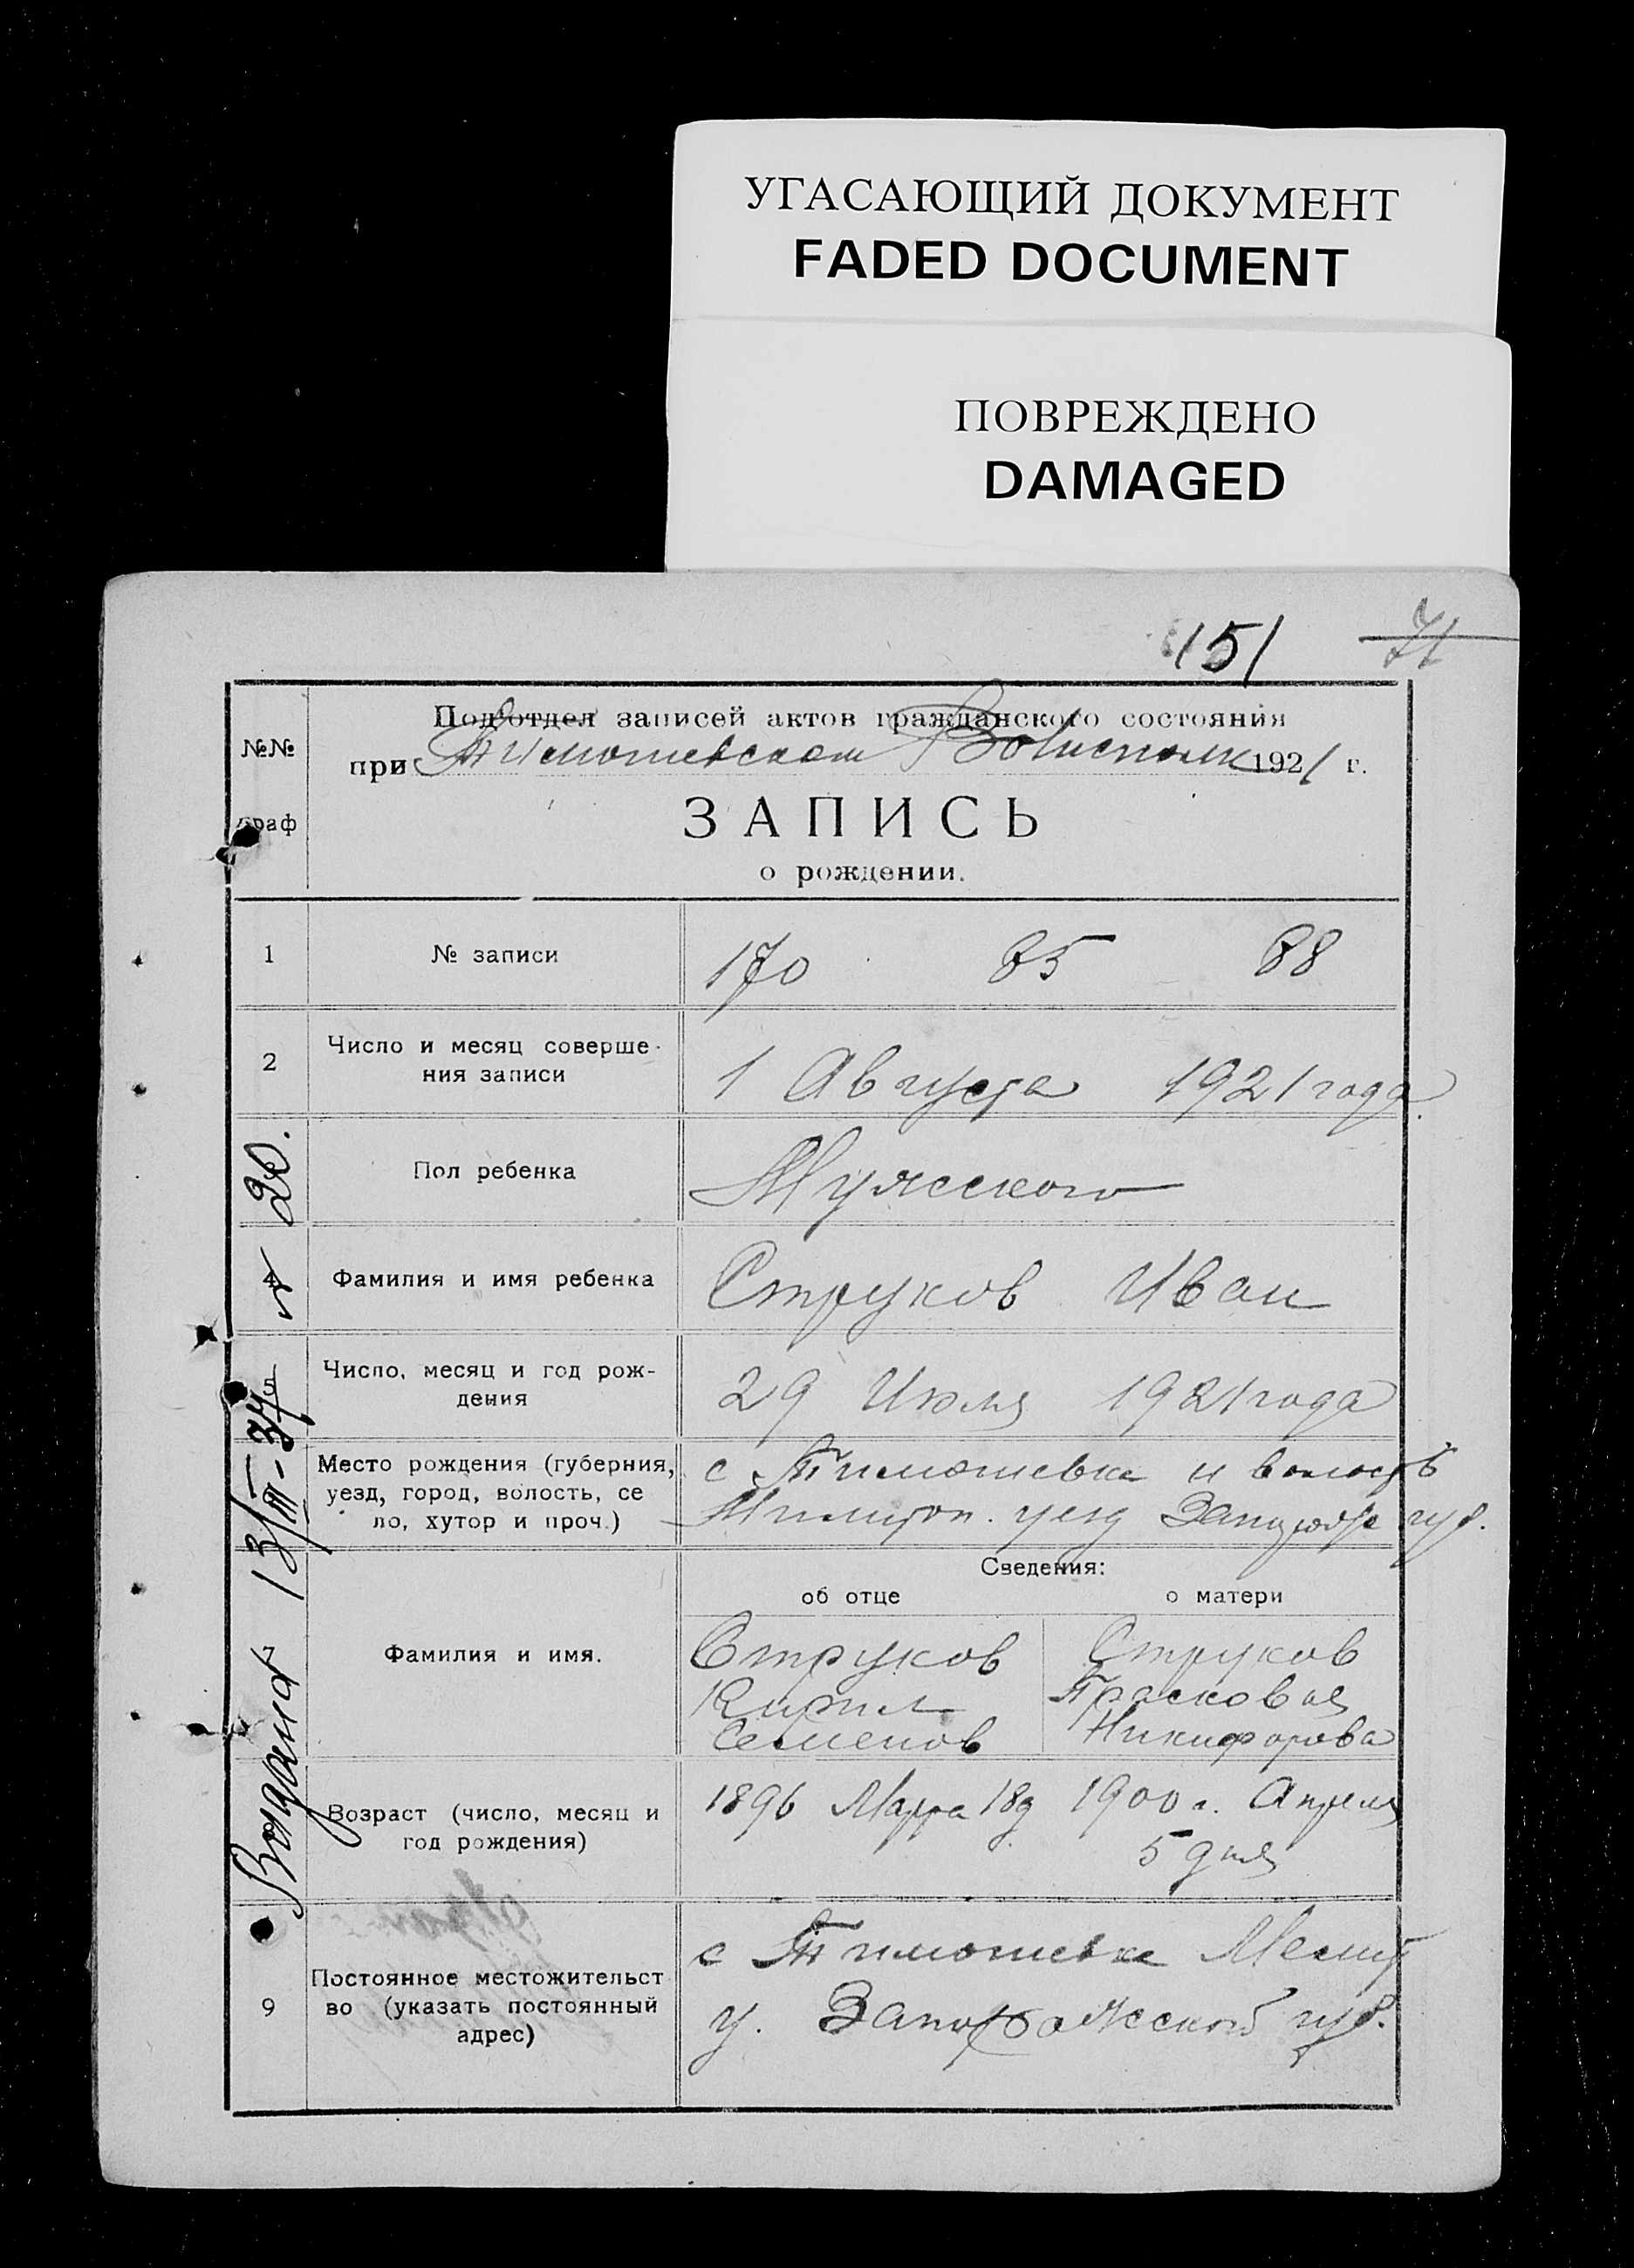 УГАСАЮЩИЙ ДОКУМЕНТ
FADED DOCUMENT
ПОВРЕЖДЕНО
DAMAGED
151 71
№№
граф
Подотдел записей актов гражданского состояния
при Тимошевском Волисполк 1921 г.
ЗАПИСЬ
о рождении.
1 № записи 170 85 88
2 Число и месяц соверше-
ния записи 1 Августа 1921 года
Пол ребенка Мужского
4 Фамилия и имя ребенка Струков Иван
5 Число, месяц и год рож-
дения 29 Июля 1921 года
Место рождения (губерния,
уезд, город, волость, се
ло, хутор и проч.)
с Тимошевка и волость
уезд губ.
Сведения:
об отце о матери
7 Фамилия и имя.
Струков Струков
Кирил Прасковия
Семенов Никифорова
Возраст (число, месяц и
год рождения)
1896 Марта 18д 1900 г. Апреля
5 дня
9 Постоянное местожительст
во (указать постоянный
адрес)
с Тимошевка Мелит
у. Запорожской губ.
13/III-37 20.